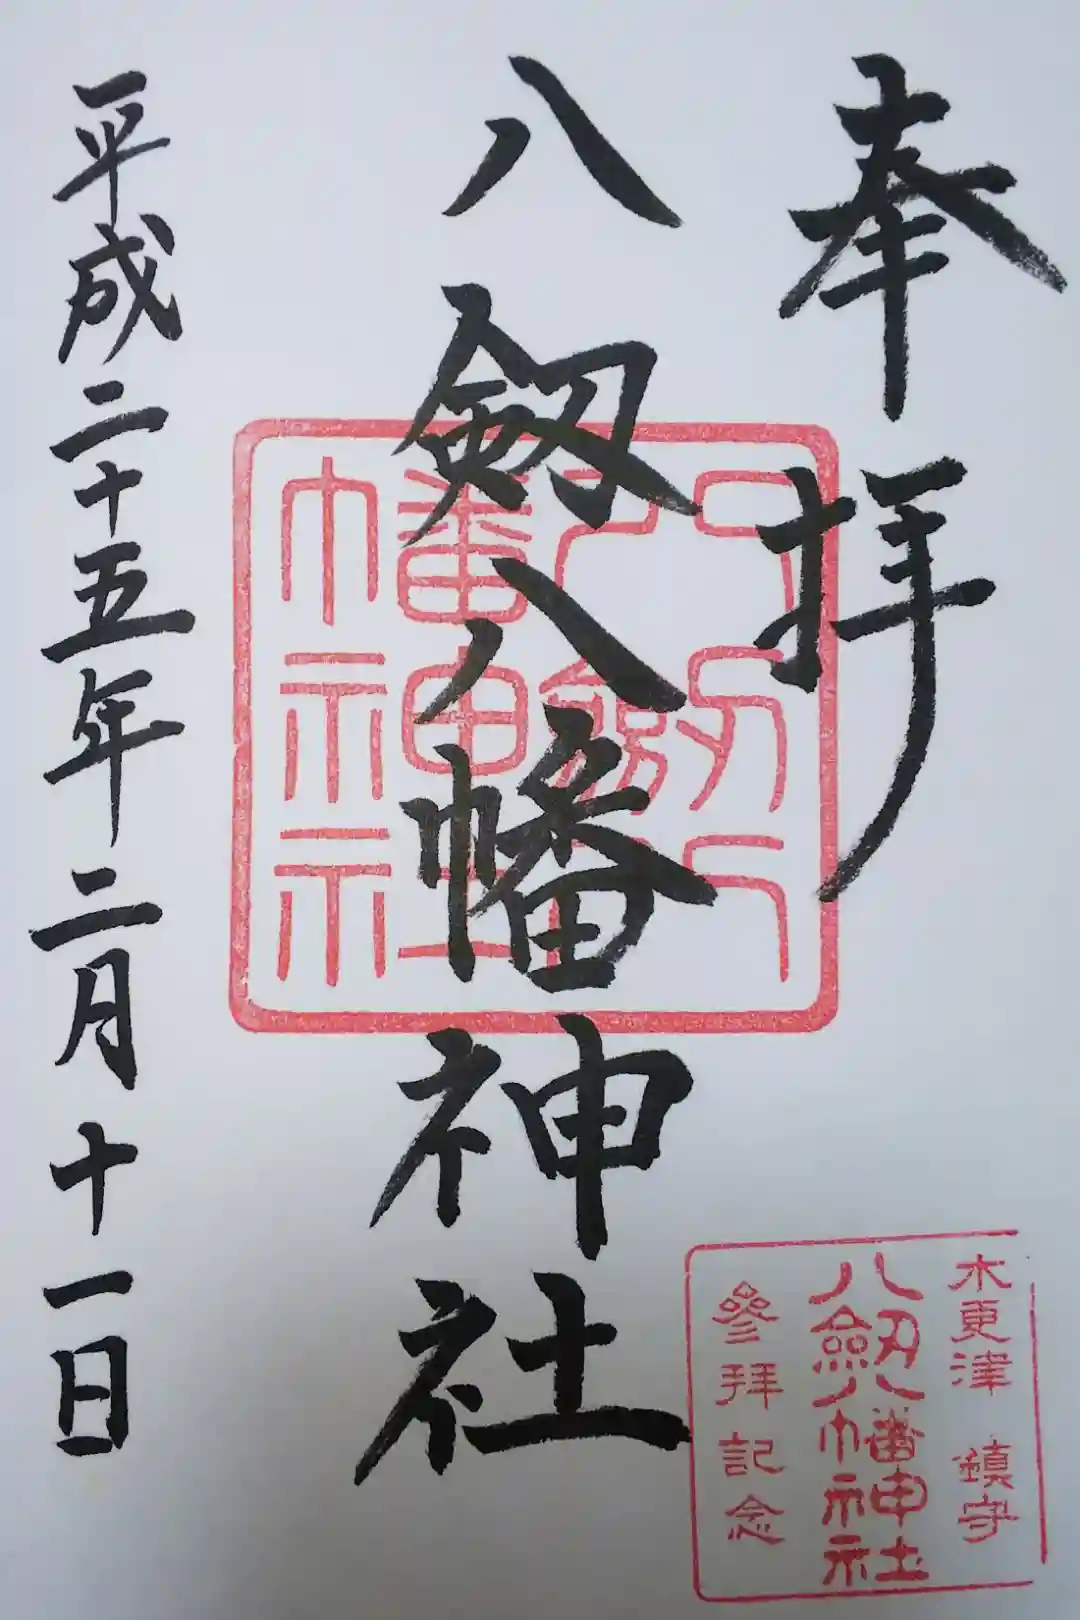 奉拝
八劔八幡神社
平成二十五年二月十一日
八劔八幡神社
木更津 鎮守
八劔八幡神社
參拜記念